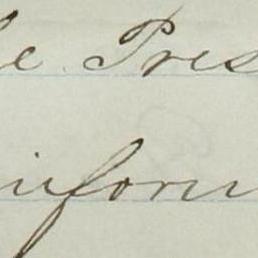 e Pres
inform